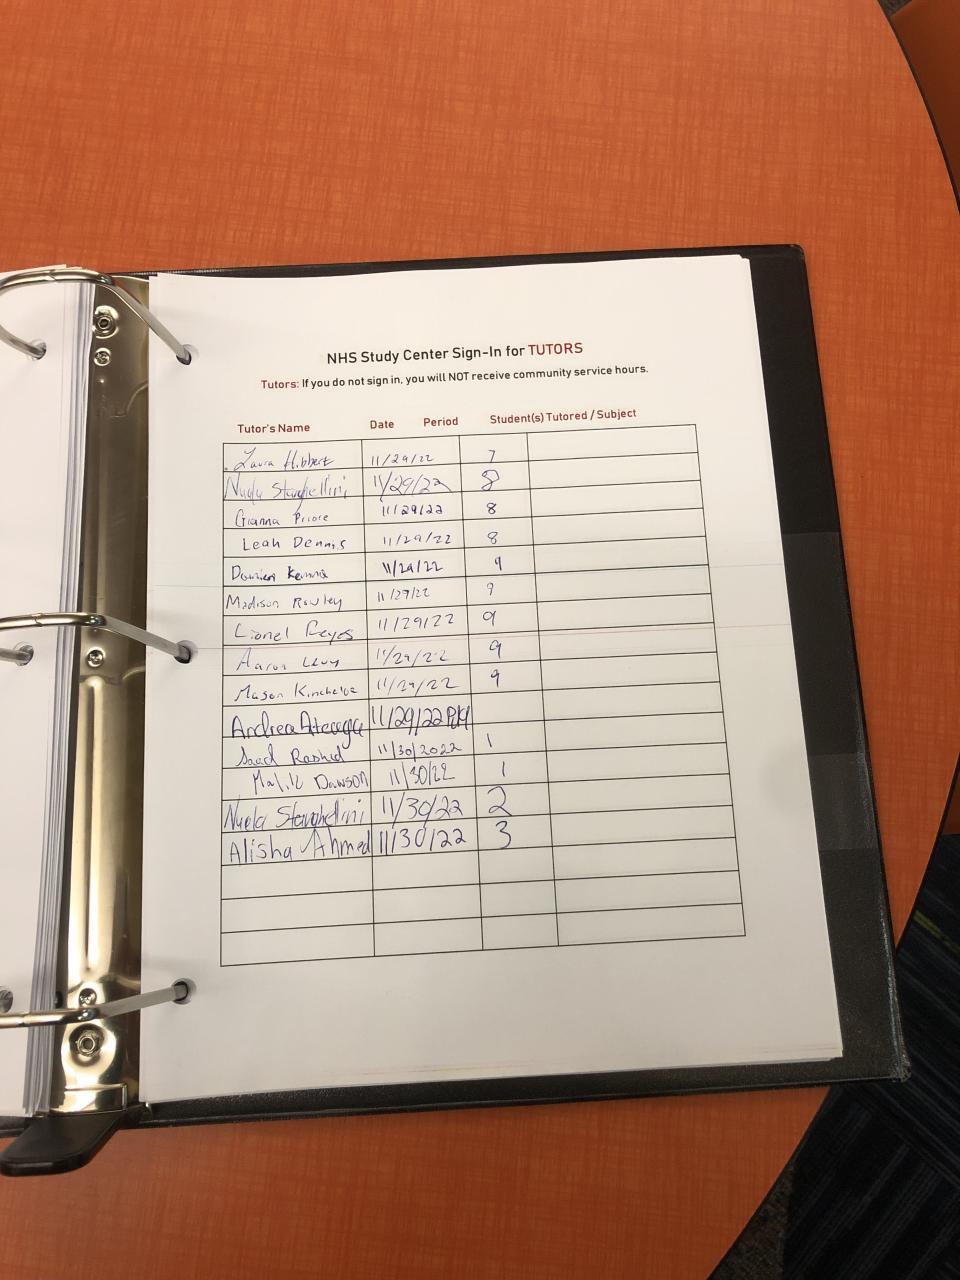 NHS Study Center Sign-In for TUTORS
Tutors: If you do not sign in, you will NOT receive community service hours.
Tutor's Name Date Period Student(s) Tutored / Subject
Laura Hibbert 11/29/22 7
11/29/22 8
Gianna Priore 11/29/22 8
Leah Dennis 11/29/22 8
Damien 11/29/22 9
Madison Rowley 11/29/22 9
Lionel Reyes 11/29/22 9
Aaron Levy 11/29/22 9
Mason Kincheloe 11/29/22 9
Andrea 11/29/22
Saad Rashid 11/30/2022 1
Malik Dawson 11/30/22 1
Nyela 11/30/22 2
Alisha Ahmed 11/30/22 3